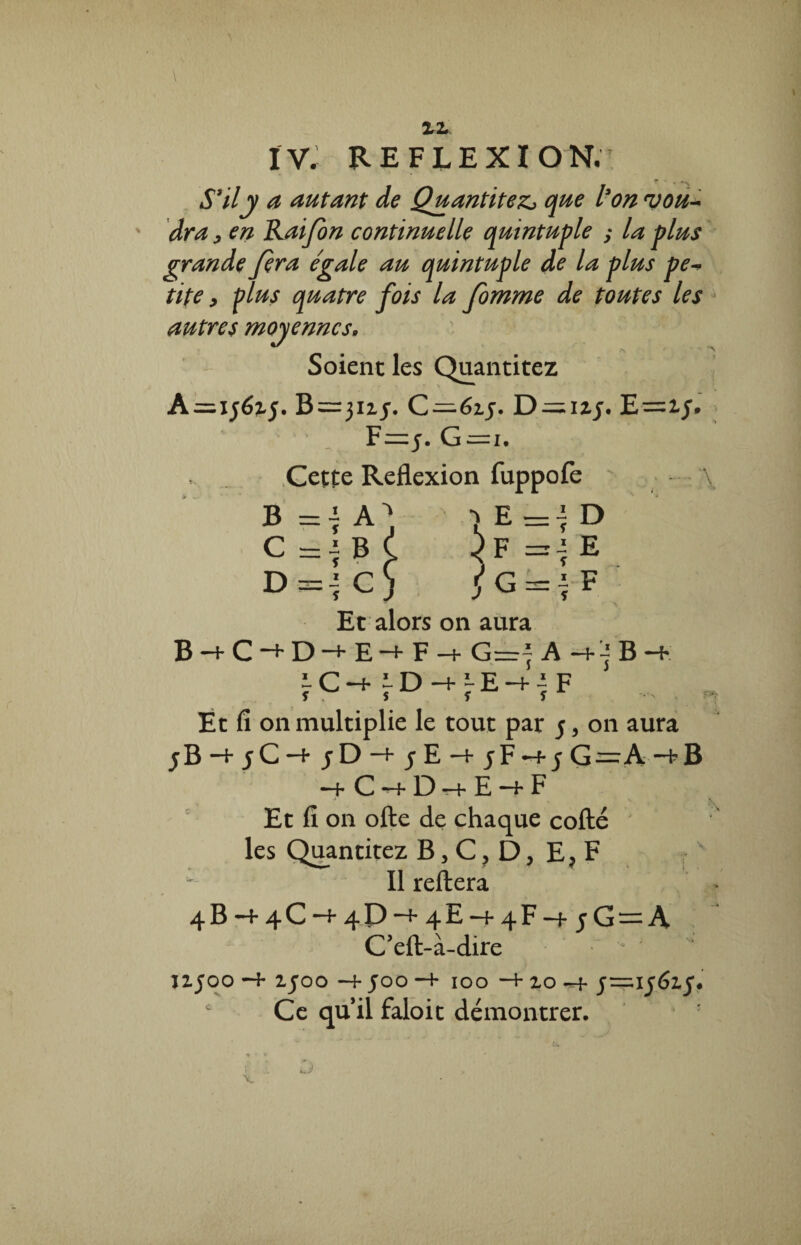 22
IV. REFLEXION.
S'il y a autant de Quantitez que l'on vou-
dra, en Raiſon continuelle quintuple ; la plus
grande ſera égale au quintuple de la plus pe-
tite, plus quatre fois la ſomme de toutes les
autres moyennes.
Soient les Quantitez
A=15625. B=3125. C=625. D=125. E=25.
F=5. G=1.
Cette Reflexion ſuppoſe
B = 1/5 A } { E = 1/5 D
C = 1/5 B } { F = 1/5 E
D = 1/5 C } { G = 1/5 F
Et alors on aura
B + C + D + E + F + G = 1/5 A + 1/5 B +
1/5 C + 1/5 D + 1/5 E + 1/5 F
Et ſi on multiplie le tout par 5, on aura
5B + 5C + 5D + 5E + 5F + 5G=A + B
+ C + D + E + F
Et ſi on oſte de chaque coſté
les Quantitez B, C, D, E, F
Il reſtera
4B + 4C + 4D + 4E + 4F + 5G=A
C'eſt-à-dire
12500 + 2500 + 500 + 100 + 20 + 5=15625.
Ce qu'il faloit démontrer.